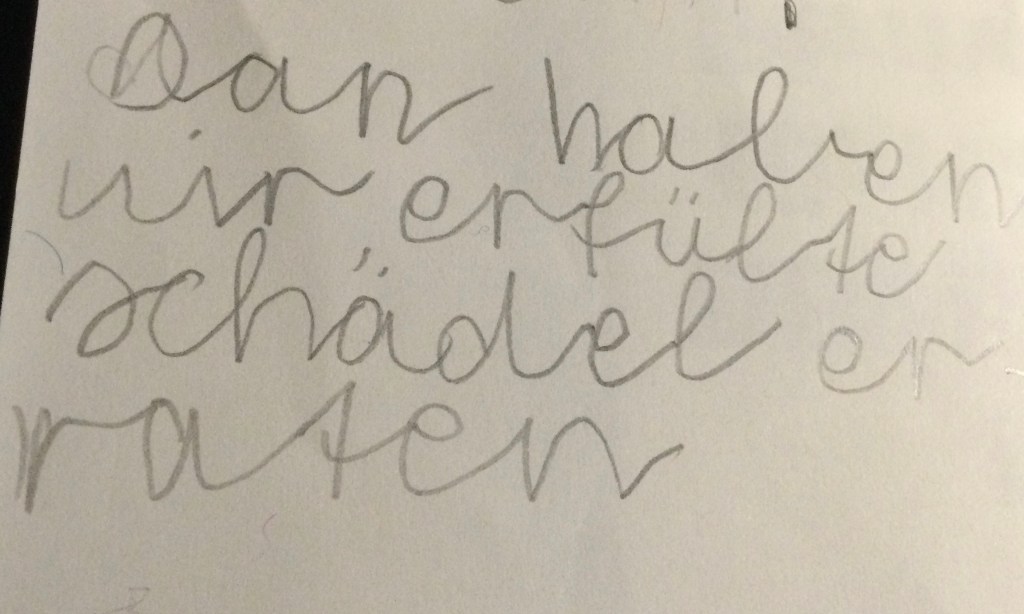 Dan haben
wir erfülte
schädel er
raten